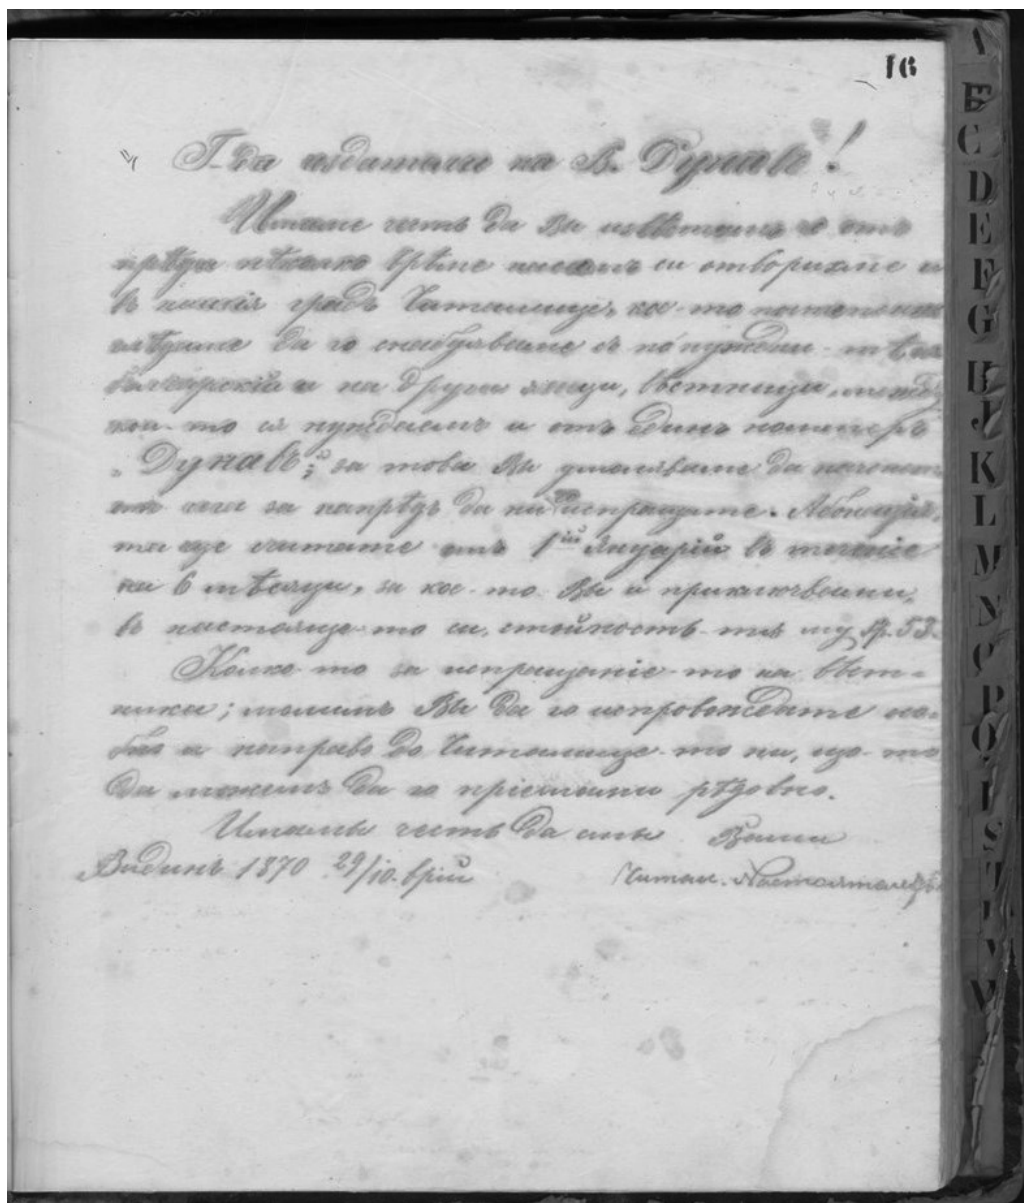 16
Г-да издатели на В. Дунавъ!
Имаме честь да Ви извѣстимъ че отъ
прѣди нѣколко врѣме насамъ си отворихме и
въ нашия градъ Читалище, кое-то постепенно
гледаме да го снабдяваме съ по нуждни-тѣ на
Бѫлгарскій и на други язици, вѣстници, между
кои-то ся нуждаемъ и отъ единъ номеръ
„Дунавъ"; за това Ви умоляваме да начнете
отъ сега за напрѣдъ да ни го испращате. Абонаціѧ
та ще считате отъ 1ій Януарій въ теченіе
на 6 мѣсяци, за кое-то Ви и приключваме,
въ настояще-то си, стойность-тѫ му гр. 53.
Колко-то за испращаніе-то на вѣст-
ника; молимъ Ви да го испровождате осо-
бно и направо до Читалище-то ни, що-то
да можемъ да го пріемами рѣдовно.
Имамы честь да смы Ваши
Видинъ 1870 29/10.врій Читал. Настоятели
A
B
C
D
E
F
G
H
J
K
L
M
N
O
P
Q
R
S
T
V
W